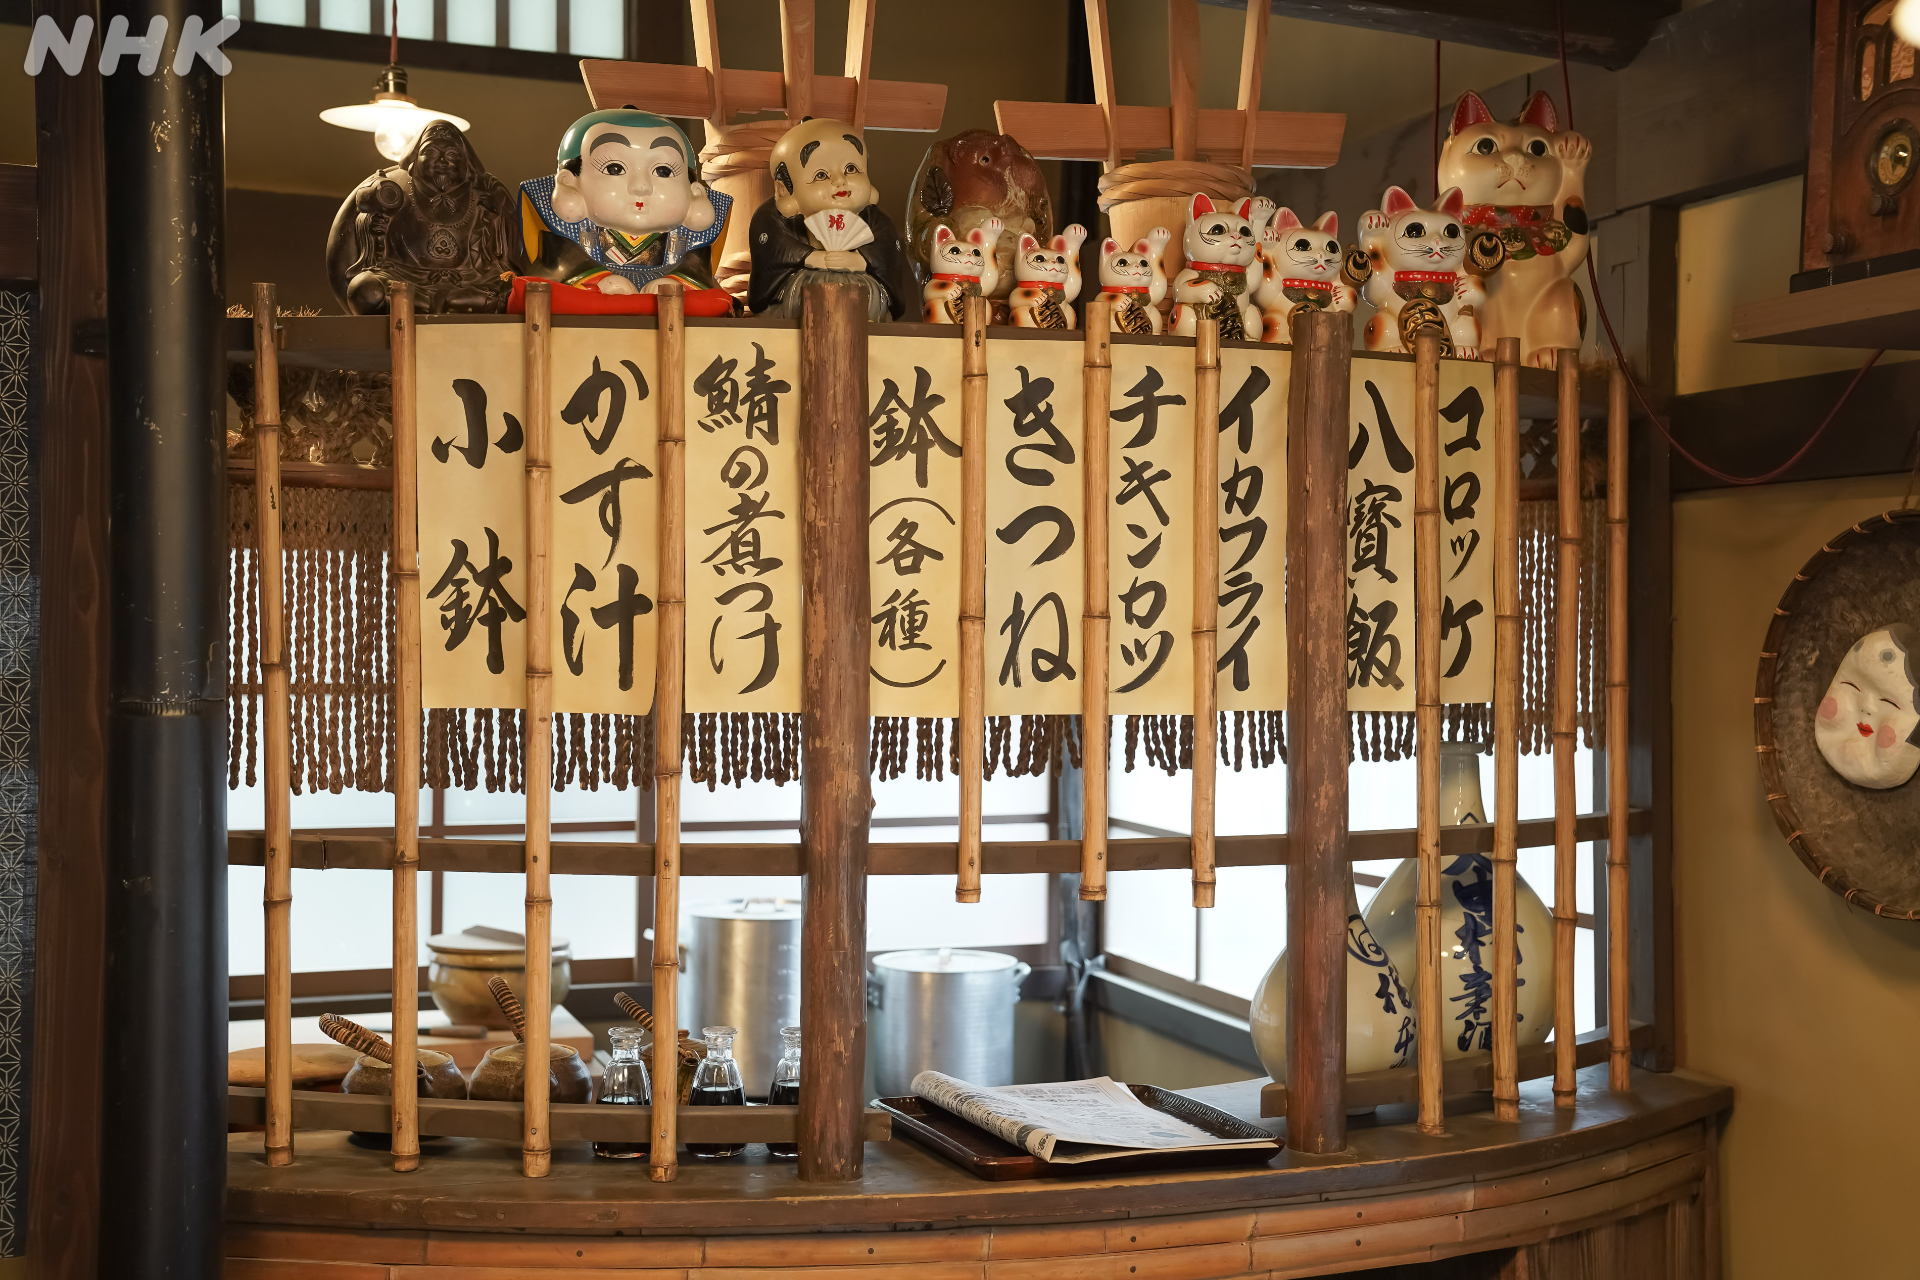 NHK
コロッケ
八寳飯
イカフライ
チキンカツ
きつね
鉢(各種)
鯖の煮つけ
かす汁
小鉢
福